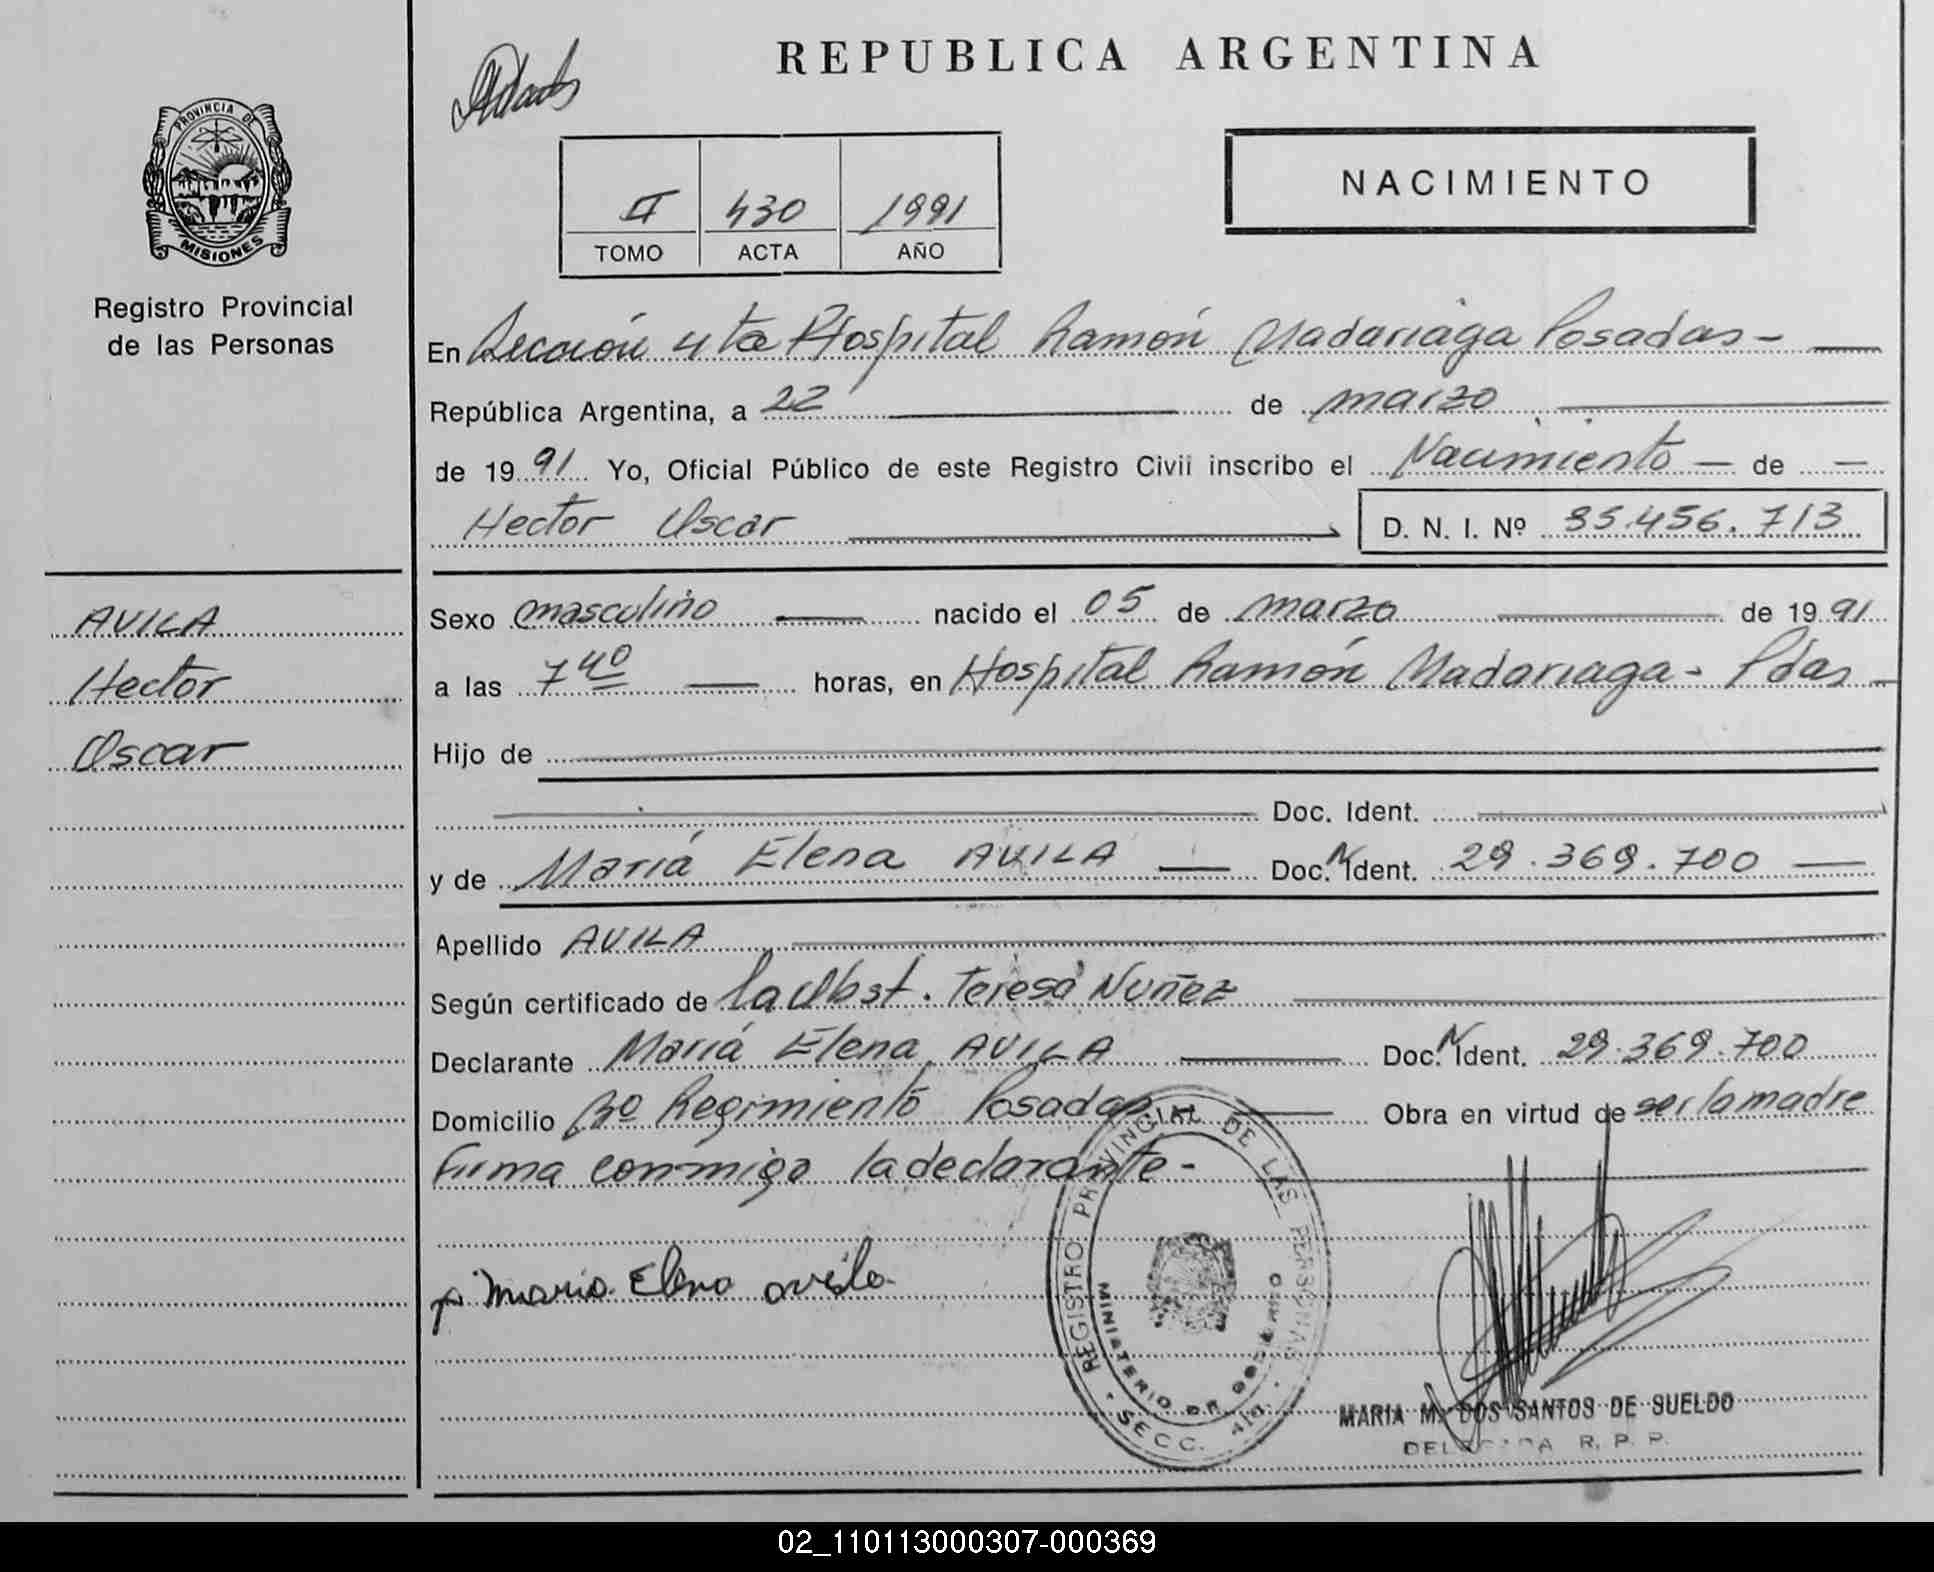 REPUBLICA ARGENTINA
PROVINCIA DE
MISIONES
Registro Provincial
de las Personas
NACIMIENTO
II 430 1991
TOMO ACTA AÑO
En Sección 4ta Hospital Ramón Madariaga Posadas -
República Argentina, a 22 de marzo
de 1991 Yo, Oficial Público de este Registro Civil inscribo el Nacimiento — de —
Hector Oscar D. N. I. Nº 35.456.713
AVILA
Hector
Oscar
Sexo masculino nacido el 05 de marzo de 1991
a las 7 40 horas, en Hospital Ramón Madariaga - Pdas
Hijo de
Doc. Ident.
y de Mariá Elena AVILA Doc. N Ident. 29.369.700
Apellido AVILA
Según certificado de la Obst. Teresa Nuñez
Declarante Mariá Elena AVILA Doc. N Ident. 29.369.700
Domicilio Bº Regimiento Posadas Obra en virtud de ser la madre
Firma conmigo la declarante -
Maria Elena avila
REGISTRO PROVINCIAL DE LAS PERSONAS
MINISTERIO DE GOBIERNO
SECC. 4ta.
MARIA M. DOS SANTOS DE SUELDO
DELEGADA R. P. P.
02_110113000307-000369